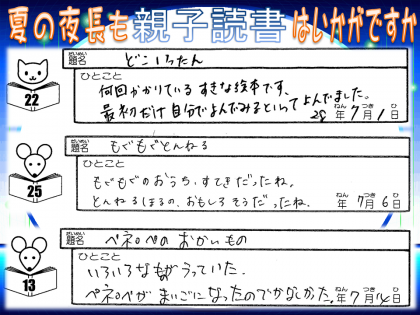 夏の夜長も親子読書はいかがですか
だいめい
題名 どこいったん
ひとこと
何回かりている すきな絵本です。
最初だけ自分でよんでみるといってよんでました。
22
28年7月1日
ねん つき ひ
だいめい
題名 もぐもぐとんねる
ひとこと
もぐもぐのおうち、すてきだったね。
とんねるほるの、おもしろそうだったね。
25
ねん つき ひ
年7月6日
だいめい
題名 ペネロペのおかいもの
ひとこと
いろいろなものがうっていた。
ペネロペがまいごになったのでかなしかった。
13
ねん つき ひ
年7月14日